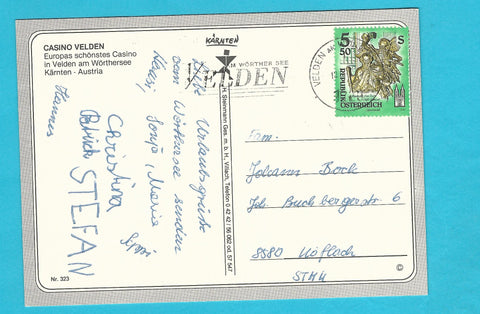 CASINO VELDEN
Europas schönstes Casino
in Velden am Wörthersee
Kärnten - Austria
KÄRNTEN
AM WÖRTHER SEE
VELDEN
VELDEN AM
5 50
S
REPUBLIK
ÖSTERREICH
Urlaubsgrüße
vom Wörthersee senden
Sonja, Maria
Hannes
Patrick
Christina
STEFAN
Fam.
Johann Bock
Joh. Buchbergerstr. 6
8580 Köflach
STMK
Ges. m. b. H., Villach, Telefon 0 42 42 / 56 0 62 od. 57 5 47
Nr. 323
©